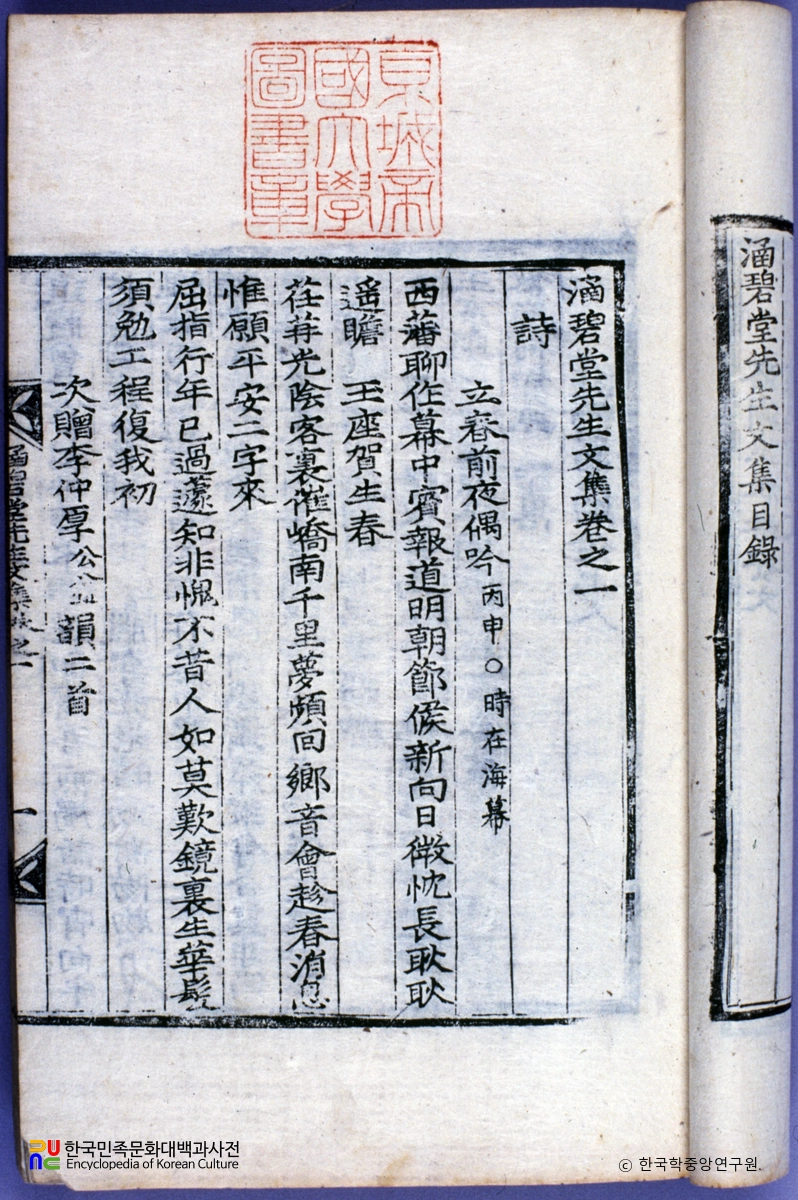 涵碧堂先生文集目錄
京城帝
國大學
圖書章
涵碧堂先生文集卷之一
詩
立春前夜偶吟 丙申○時在海幕
西藩聊作幕中賓報道明朝節候新向日微忱長耿耿
遥瞻 王座賀生春
荏苒光陰客裏催嶠南千里夢頻回鄉音會趁春消息
惟願平安二字來
屈指行年已過蘧知非愧不昔人如莫歎鏡裏生華鬂
須勉工程復我初
次贈李仲厚公韻二首
涵碧堂先生文集卷之一
一
한국민족문화대백과사전
Encyclopedia of Korean Culture
ⓒ 한국학중앙연구원